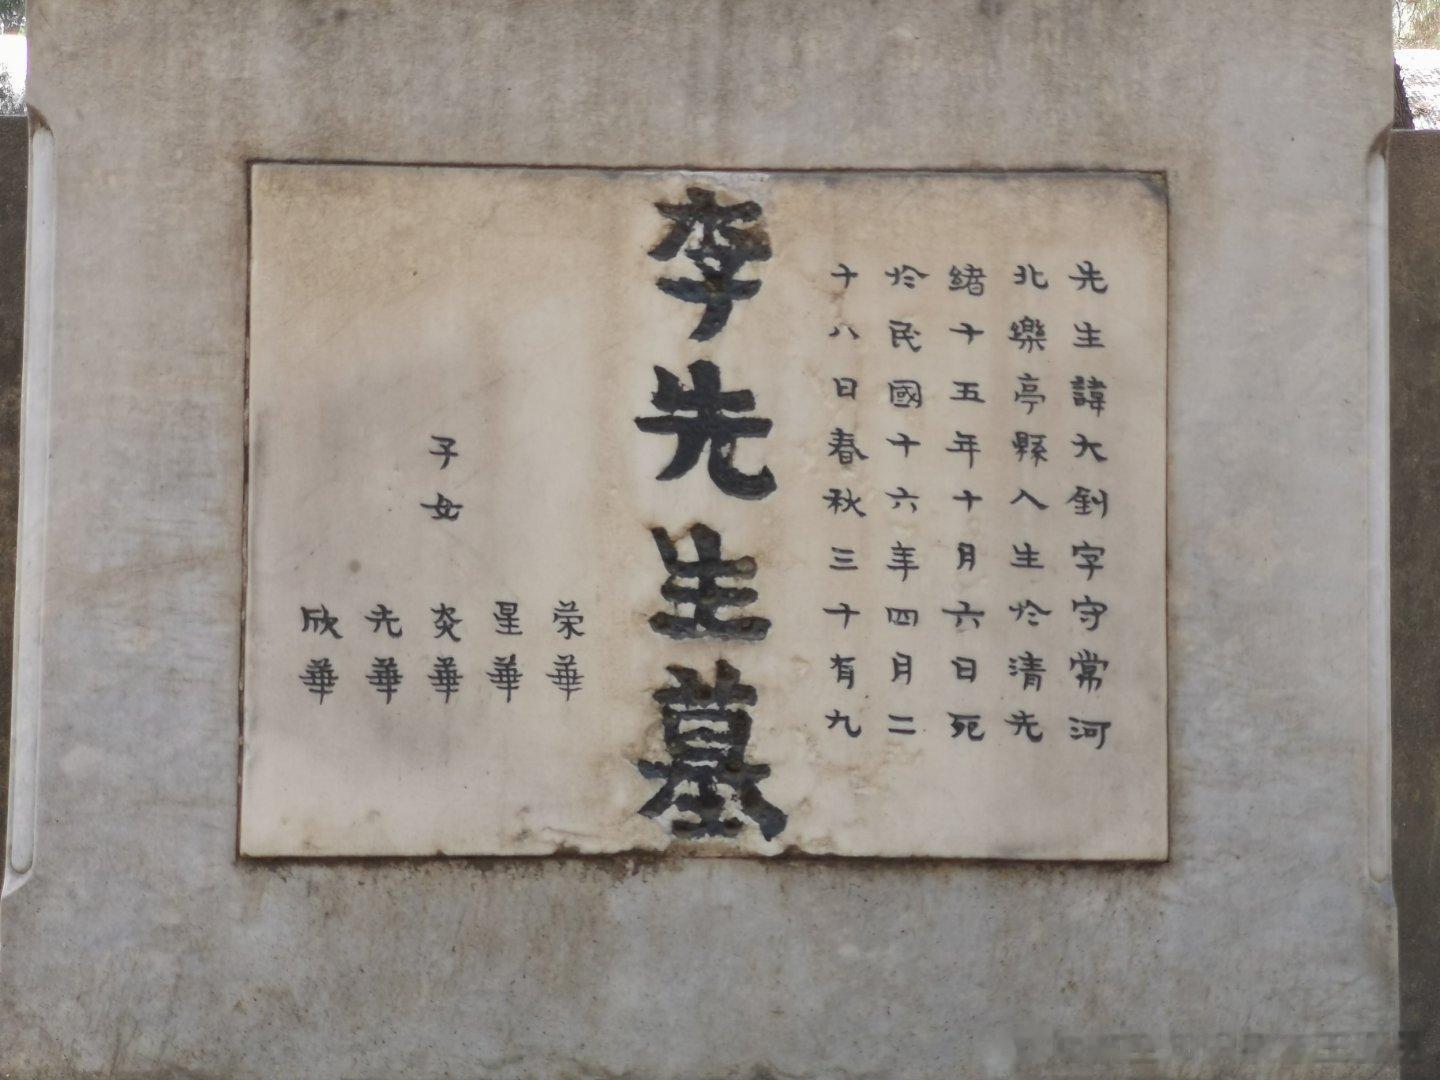 先生諱大釗字守常河
北樂亭縣人生於清光
緒十五年十月六日死
於民國十六年四月二
十八日春秋三十有九
李先生墓
子女
荣華
星華
炎華
光華
欣華